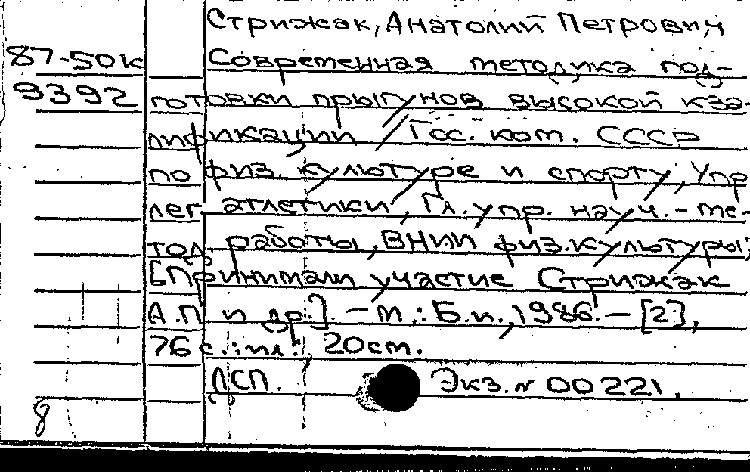 Стрижак, Анатолий Петрович
87-50к Современная методика под-
9392 готовки прыгунов высокой ква-
лификации / Гос. ком. СССР
по физ. культуре и спорту, Упр
лег. атлетики, Гл. упр. науч.-ме-
тод. работы, ВНИИ физ. культуры;
[Принимали участие Стрижак
А.П и др.]. - М.: Б.и., 1986. - [2],
76 с.: ил.; 20 см.
ДСП. Экз. № 00221.
8